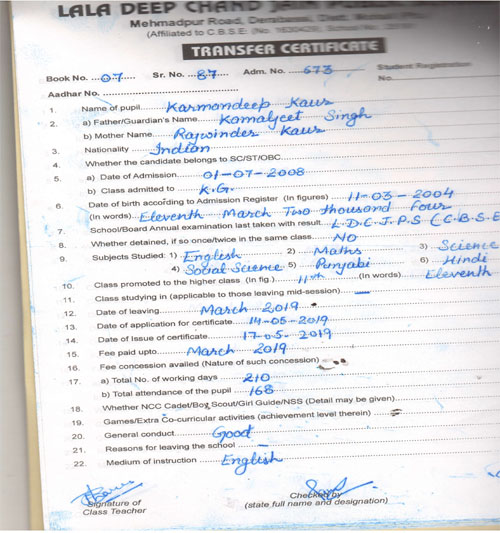 LALA DEEP CHAND JAIN
Mehmadpur Road, Derabassi, Distt.
(Affiliated to C.B.S.E.
TRANSFER CERTIFICATE
Student Registration
Book No. ...07 Sr. No. ...87 Adm. No. ...673 No.
Aadhar No.
1. Name of pupil Karmandeep Kaur
2. a) Father/Guardian's Name Kamaljeet Singh
b) Mother Name Rajwinder Kaur
3. Nationality Indian
4. Whether the candidate belongs to SC/ST/OBC
5. a) Date of Admission 01-07-2008
b) Class admitted to K.G.
6. Date of birth according to Admission Register (In figures) 11-03-2004
(In words) Eleventh March Two thousand four
7. School/Board Annual examination last taken with result L.D.C.J.P.S (C.B.S.E
8. Whether detained, if so once/twice in the same class NO
9. Subjects Studied: 1) English 2) Maths 3) Science
4) Social Science 5) Punjabi 6) Hindi
10. Class promoted to the higher class (In fig.) 11th (In words) Eleventh
11. Class studying in (applicable to those leaving mid-session) —
12. Date of leaving March, 2019
13. Date of application for certificate 14-05-2019
14. Date of Issue of certificate 17-05-2019
15. Fee paid upto March 2019
16. Fee concession availed (Nature of such concession)
17. a) Total No. of working days 210
b) Total attendance of the pupil 168
18. Whether NCC Cadet/Boy Scout/Girl Guide/NSS (Detail may be given)
19. Games/Extra Co-curricular activities (achievement level therein)
20. General conduct Good
21. Reasons for leaving the school —
22. Medium of instruction English
Signature of
Class Teacher
Checked by
(state full name and designation)